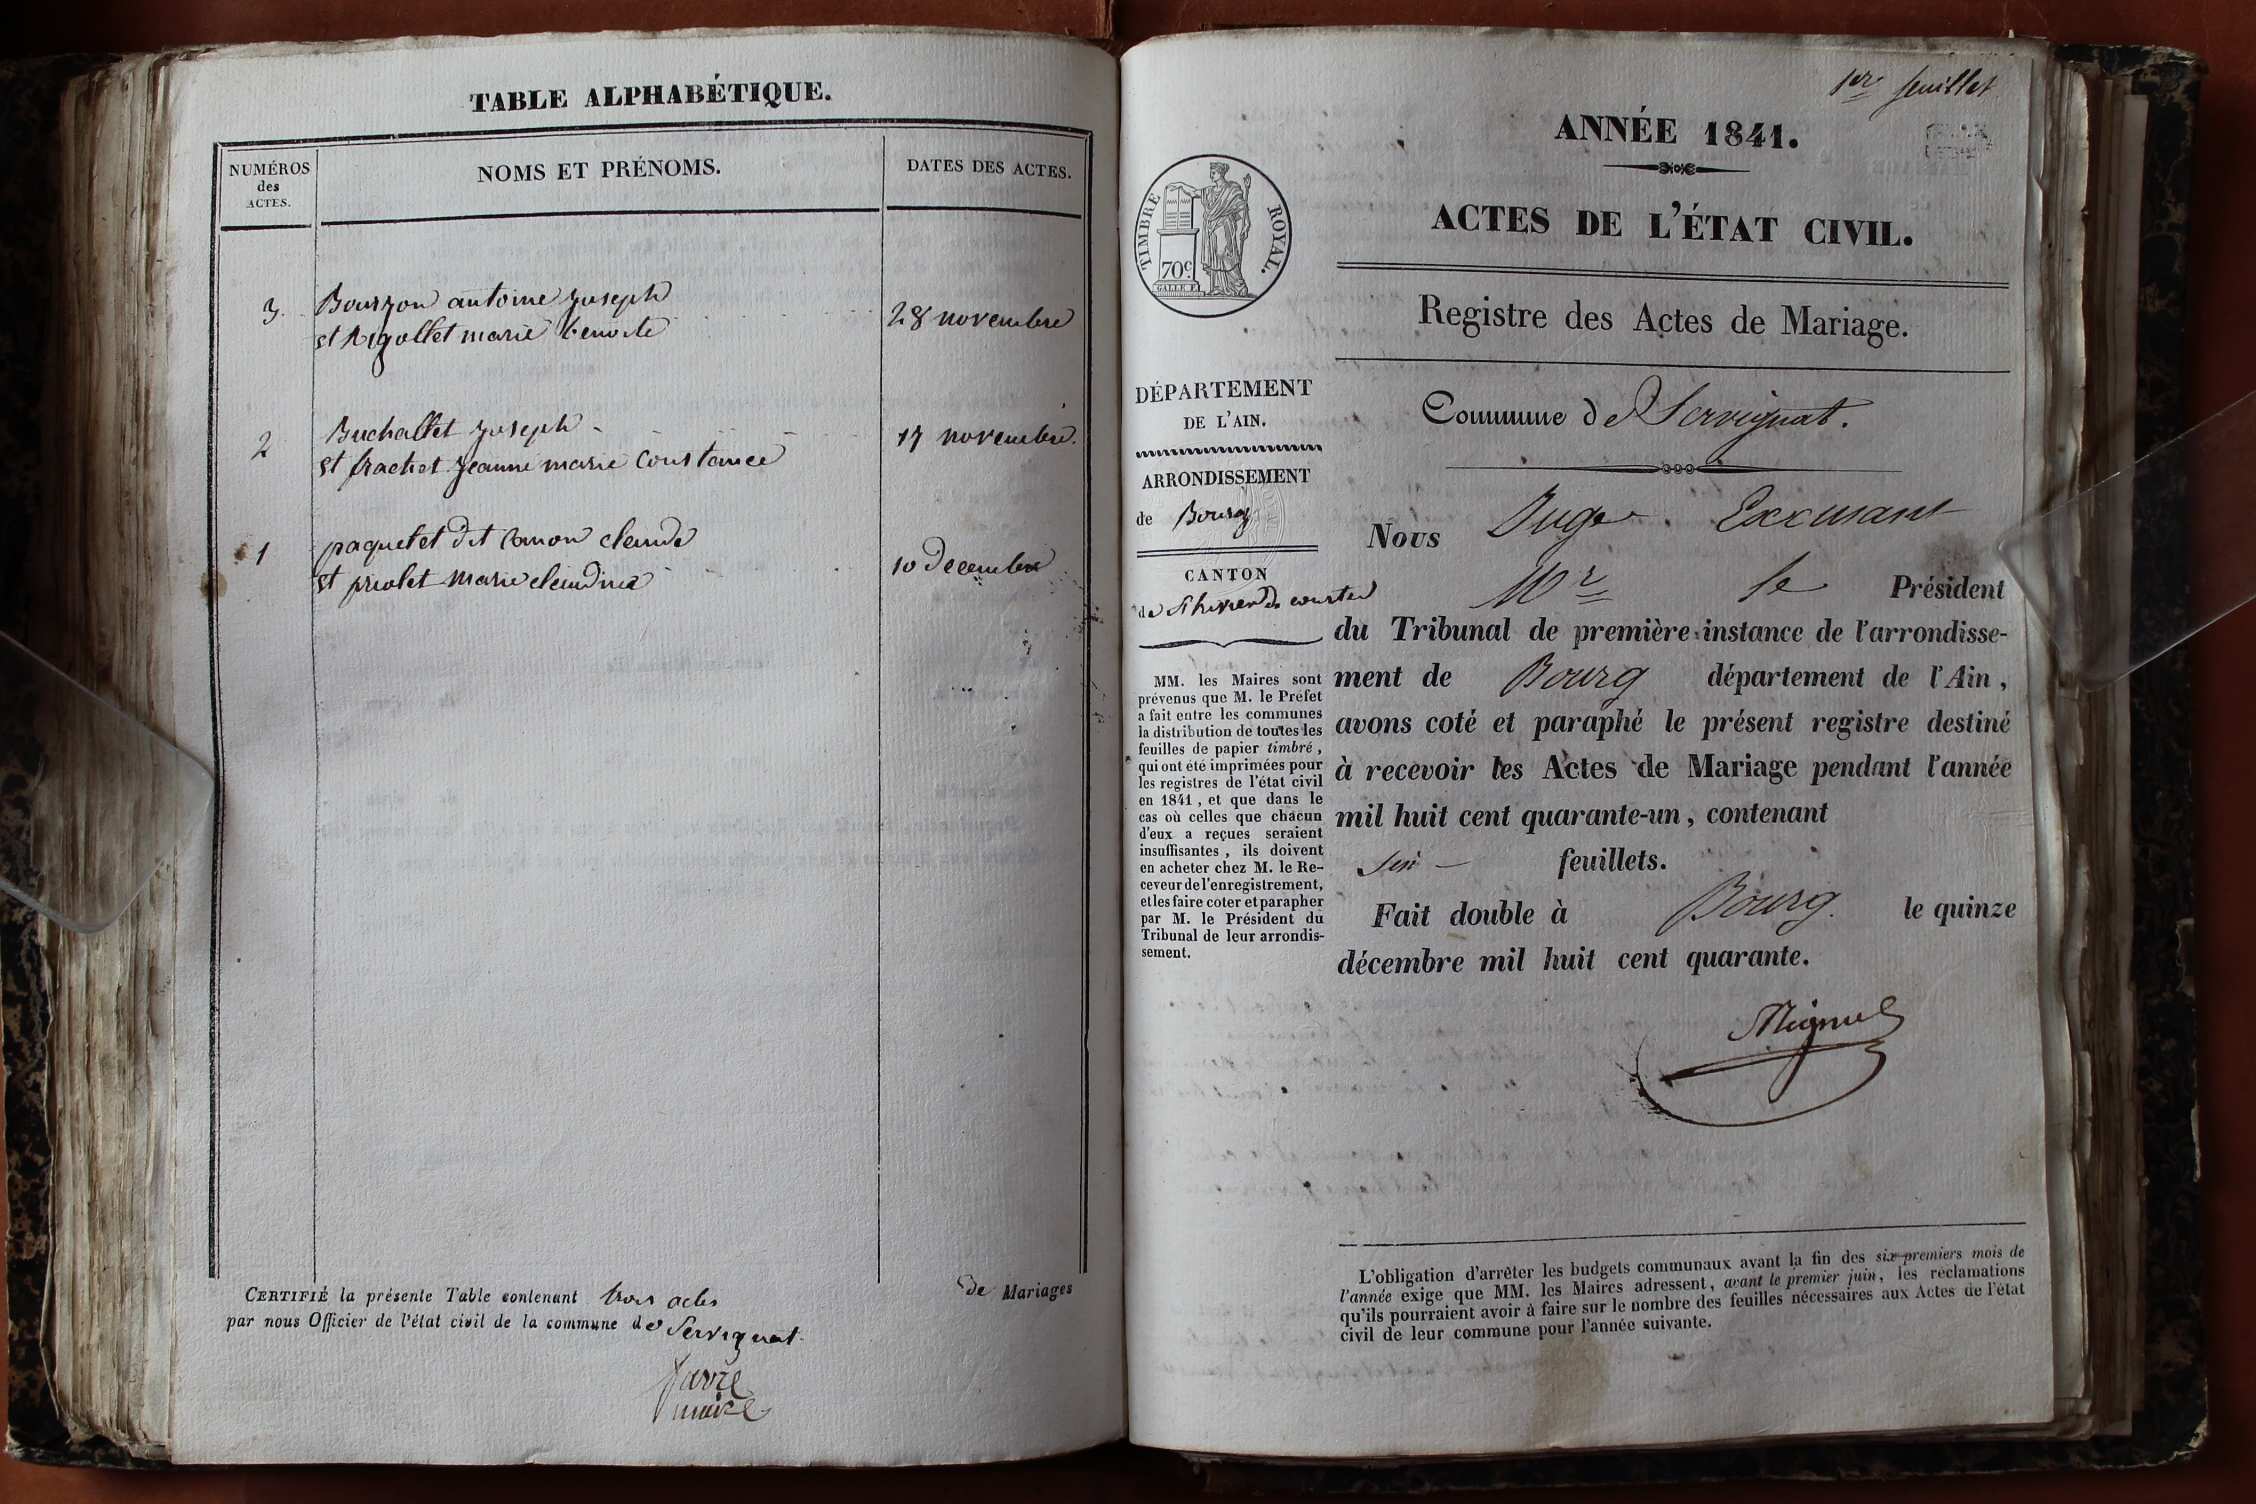 TABLE ALPHABÉTIQUE.
NUMÉROS
des
ACTES.
NOMS ET PRÉNOMS.
DATES DES ACTES.
3. Bourzon antoine joseph
et Rigollet marie benoite
28 novembre
2 Buchallet joseph
et frachet jeanne marie Constance
17 novembre.
1 paquetet dit Canon claude
et priolet marie claudine
10 Decembre
CERTIFIÉ la présente Table contenant trois actes de Mariages
par nous Officier de l'état civil de la commune de Servignat.
favre
maire
1er feuillet
ANNÉE 1841.
ACTES DE L'ÉTAT CIVIL.
TIMBRE ROYAL.
70c
Registre des Actes de Mariage.
DÉPARTEMENT
DE L'AIN.
ARRONDISSEMENT
de Bourg
CANTON
de St trivier de courtes
MM. les Maires sont
prévenus que M. le Préfet
a fait entre les communes
la distribution de toutes les
feuilles de papier timbré,
qui ont été imprimées pour
les registres de l'état civil
en 1841, et que dans le
cas où celles que chacun
d'eux a reçues seraient
insuffisantes, ils doivent
en acheter chez M. le Re-
ceveur de l'enregistrement,
et les faire coter et parapher
par M. le Président du
Tribunal de leur arrondis-
sement.
Commune de Servignat.
Nous Juge
Mr le Président
du Tribunal de première instance de l'arrondisse-
ment de Bourg département de l'Ain,
avons coté et paraphé le présent registre destiné
à recevoir les Actes de Mariage pendant l'année
mil huit cent quarante-un, contenant
six feuillets.
Fait double à Bourg. le quinze
décembre mil huit cent quarante.
L'obligation d'arrêter les budgets communaux avant la fin des six premiers mois de
l'année exige que MM. les Maires adressent, avant le premier juin, les réclamations
qu'ils pourraient avoir à faire sur le nombre des feuilles nécessaires aux Actes de l'état
civil de leur commune pour l'année suivante.